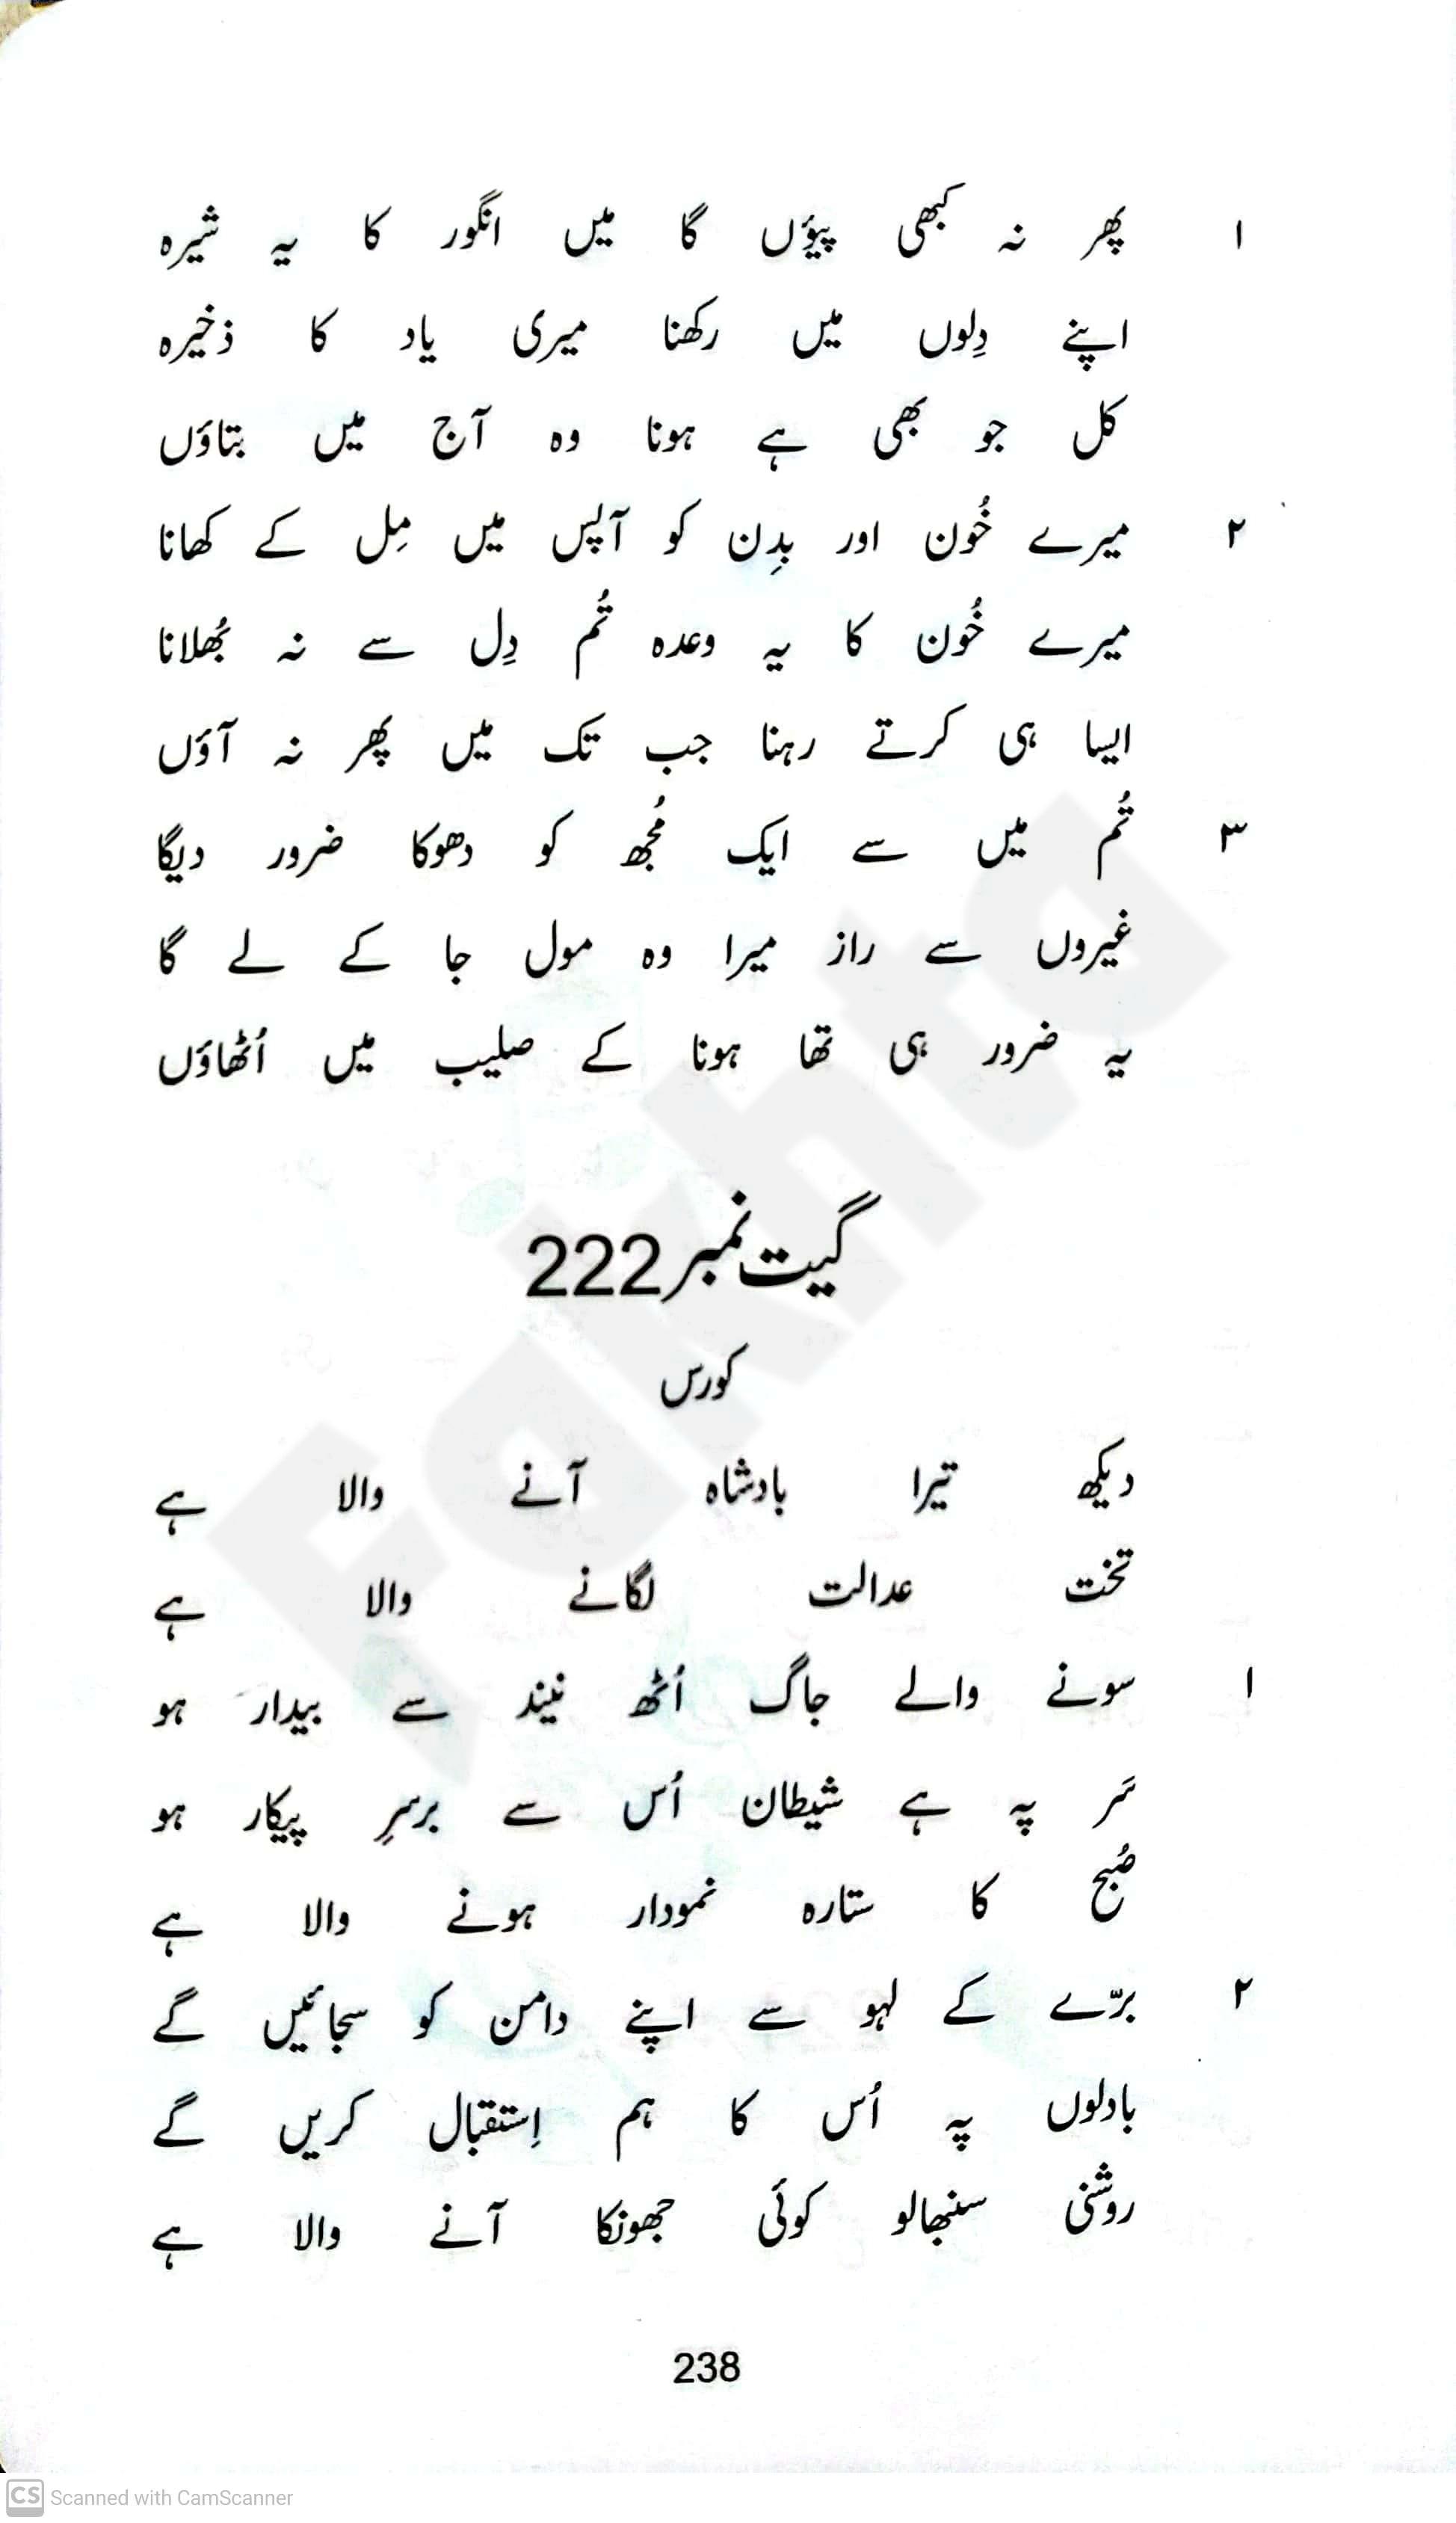 ۱ پھر نہ کبھی پیؤں گا میں انگور کا یہ شیرہ
اپنے دِلوں میں رکھنا میری یاد کا ذخیرہ
کل جو بھی ہے ہونا وہ آج میں بتاؤں
۲ میرے خُون اور بدِن کو آپس میں مِل کے کھانا
میرے خُون کا یہ وعدہ تُم دِل سے نہ بُھلانا
ایسا ہی کرتے رہنا جب تک میں پھر نہ آؤں
۳ تُم میں سے ایک مُجھ کو دھوکا ضرور دیگا
غیروں سے راز میرا وہ مول جا کے لے گا
یہ ضرور ہی تھا ہونا کے صلیب میں اُٹھاؤں
گیت نمبر 222
کورس
دیکھ تیرا بادشاہ آنے والا ہے
تخت عدالت لگانے والا ہے
۱ سونے والے جاگ اُٹھ نیند سے بیدار ہو
سَر پہ ہے شیطان اُس سے برسرِ پیکار ہو
صُبح کا ستارہ نمودار ہونے والا ہے
۲ برّے کے لہو سے اپنے دامن کو سجائیں گے
بادلوں پہ اُس کا ہم اِستقبال کریں گے
روشنی سنبھالو کوئی جھونکا آنے والا ہے
238
Fakhta
CS Scanned with CamScanner